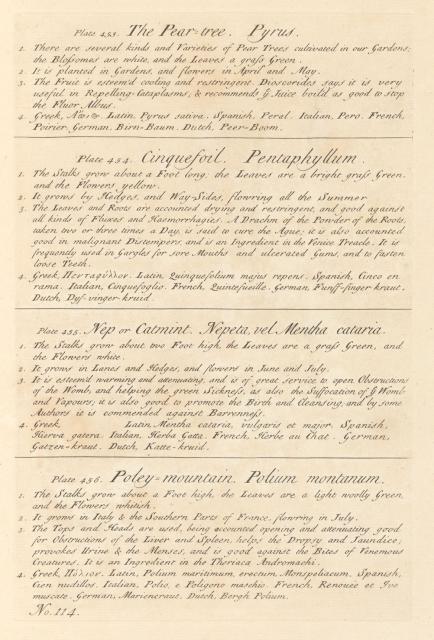 Plate 453. The Pear-tree. Pyrus.
1. There are several kinds and Varieties of Pear Trees cultivated in our Gardens;
the Blossomes are white, and the Leaves a grass Green.
2. It is planted in Gardens, and flowers in April and May.
3. The Fruit is esteem'd cooling and restringent. Dioscorides says it is very
useful in Repelling-Cataplasms, & recommends ye Juice boild as good to stop
the Fluor Albus.
4. Greek, Latin, Pyrus sativa. Spanish, Peral. Italian, Pero. French,
Poirier. German, Birn-Baum. Dutch, Peer-Boom.
Plate 454. Cinquefoil. Pentaphyllum.
1. The Stalks grow about a Foot long, the Leaves are a bright grass Green,
and the Flowers yellow.
2. It grows by Hedges, and Way-Sides, flowring all the Summer
3. The Leaves and Roots are accounted drying and restringent, and good against
all kinds of Fluxes and Haemorrhagies. A Drachm of the Powder of the Roots,
taken two or three times a Day, is said to cure the Ague; it is also accounted
good in malignant Distempers, and is an Ingredient in the Venice Treacle. It is
frequently used in Gargles for sore Mouths and ulcerated Gums, and to fasten
loose Teeth.
4. Greek, Πενταφύλλον. Latin, Quinquefolium majus repens. Spanish, Cinco en
rama. Italian, Cinquefoglio. French, Quintefueille. German, Funff-finger kraut.
Dutch, Vyf-vinger-kruid.
Plate 455. Nep or Catmint. Nepeta, vel Mentha cataria.
1. The Stalks grow about two Foot high, the Leaves are a grass Green, and
the Flowers white.
2. It grows in Lanes and Hedges, and flowers in June and July.
3. It is esteem'd warming and attenuating, and is of great service to open Obstructions
of the Womb, and helping the green Sickness, as also the Suffocation of ye Womb
and Vapours; it is also good to promote the Birth and Cleansing, and by some
Authors it is commended against Barrenness.
4. Greek, Latin, Mentha cataria, vulgaris et major. Spanish,
Hierva gatera. Italian, Herba Gatta. French, Herbe au Chat. German,
Gatzen-kraut. Dutch, Katte-kruid.
Plate 456. Poley-mountain. Polium montanum.
1. The Stalks grow about a Foot high, the Leaves are a light woolly Green,
and the Flowers whitish.
2. It grows in Italy & the Southern Parts of France, flowring in July.
3. The Tops and Heads are used, being accounted opening and attenuating, good
for Obstructions of the Liver and Spleen, helps the Dropsy and Jaundice,
provokes Urine & the Menses, and is good against the Bites of Venemous
Creatures. It is an Ingredient in the Theriaca Andromachi.
4. Greek, Πόλιον. Latin, Polium maritimum, erectum, Monspeliacum. Spanish,
Cien nudillos. Italian, Polio, e Poligono maschio. French, Renouée et Jve
muscate. German, Mariencraut. Dutch, Bergh Polium.
No. 114.